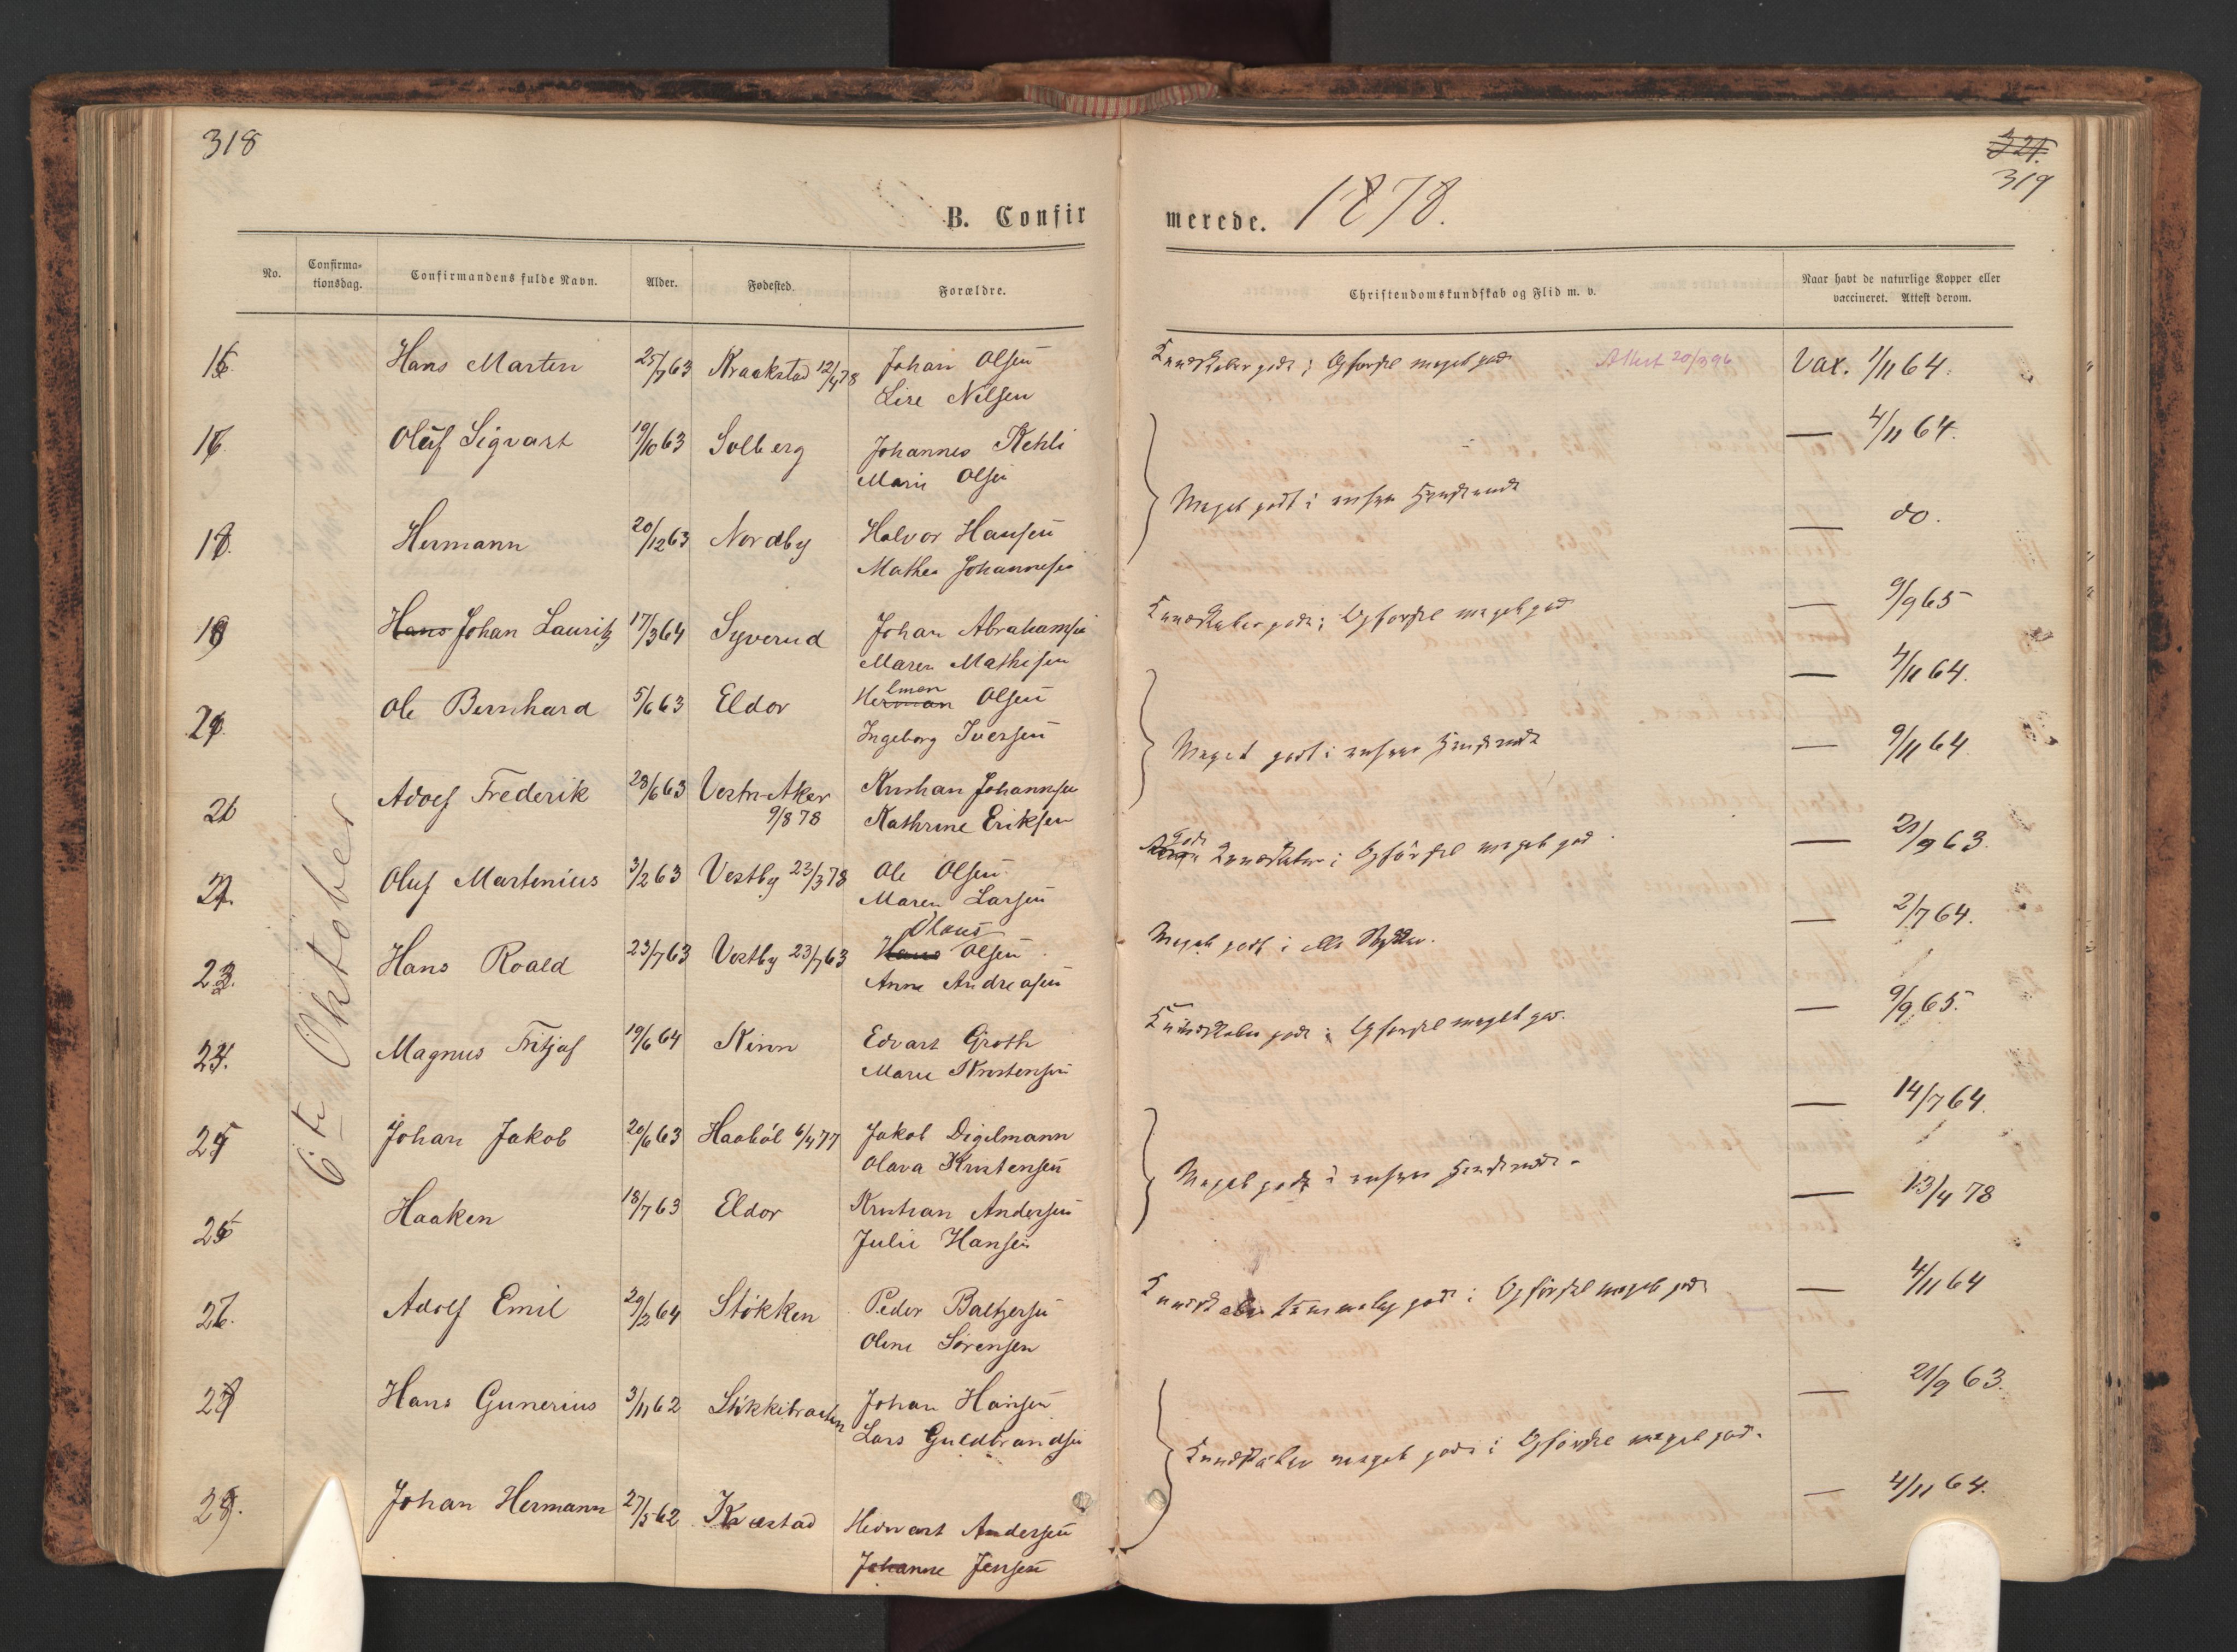 318
B. Confir
No.
Confirma-
tionsdag.
Confirmandens fulde Navn.
Alder.
Fødested
Forældre.
6te Oktober
Hans Marten 25/7 63 Kraakstad 12/4 78 Johan Olsen
Lise Nilsen
Oluf Sigvart 19/10 63 Solberg Johannes Kehli
Marie Olsen
Hermann 20/12 63 Nordby Halvor Hansen
Mathea Johannesen
Hans Johan Lauritz 17/3 64 Syverud Johan Abrahamsen
Maren Mathisen
Ole Bernhard 5/6 63 Eldor Herman Olsen
Ingeborg Iversen
Adolf Frederik 28/6 63 Vestre Aker Kristian Johannesen
9/8 78 Kathrine Eriksen
Oluf Martinius 3/2 63 Vestby 23/3 78 Ole Olsen
Maren Larsen
Olaus
Hans Roald 23/7 63 Vestby 23/7 63 Hans Olsen
Anne Andreasen
Magnus Fritjof 19/6 64 Kinn Edvart Groth
Marie Kristensen
Johan Jakob 20/6 63 Haabøl 6/4 77 Jakob Digelmann
Olava Kristensen
Haaken 18/7 63 Eldor Kristian Andersen
Julie Hansen
Adolf Emil 29/2 64 Støkken Peder Baltzersen
Oline Sørensen
Hans Gunerius 3/11 62 Stikkibraaten Johan Hansen
Lars Guldbrandsen
Johan Hermann 27/5 62 Andersen
Johanne Jensen
321.
319
merede. 1878.
Christendomskundskab og Flid m. v.
Naar havt de naturlige Kopper eller
vaccineret. Attest derom.
Kundskaber gode; Opførsel meget god Attest 20/3 96 Vax. 1/11 64.
— 4/11 64.
Meget godt i enhver Henseende
— do.
Kundskaber gode; Opførsel meget god — 9/9 65
— 4/11 64.
Meget godt i enhver Henseende — 9/11 64
Gode
Kundskaber; Opførsel meget god — 21/9 63.
Meget godt i alle Stykker. — 2/7 64.
Kundskaber gode; Opførsel meget god. — 9/9 65.
— 14/7 64.
Meget godt i enhver Henseende. — 13/4 78
Kundskaber temmelig gode; Opførsel meget god — 4/11 64
— 21/9 63.
Kundskaber meget gode; Opførsel meget god.
— 4/11 64.